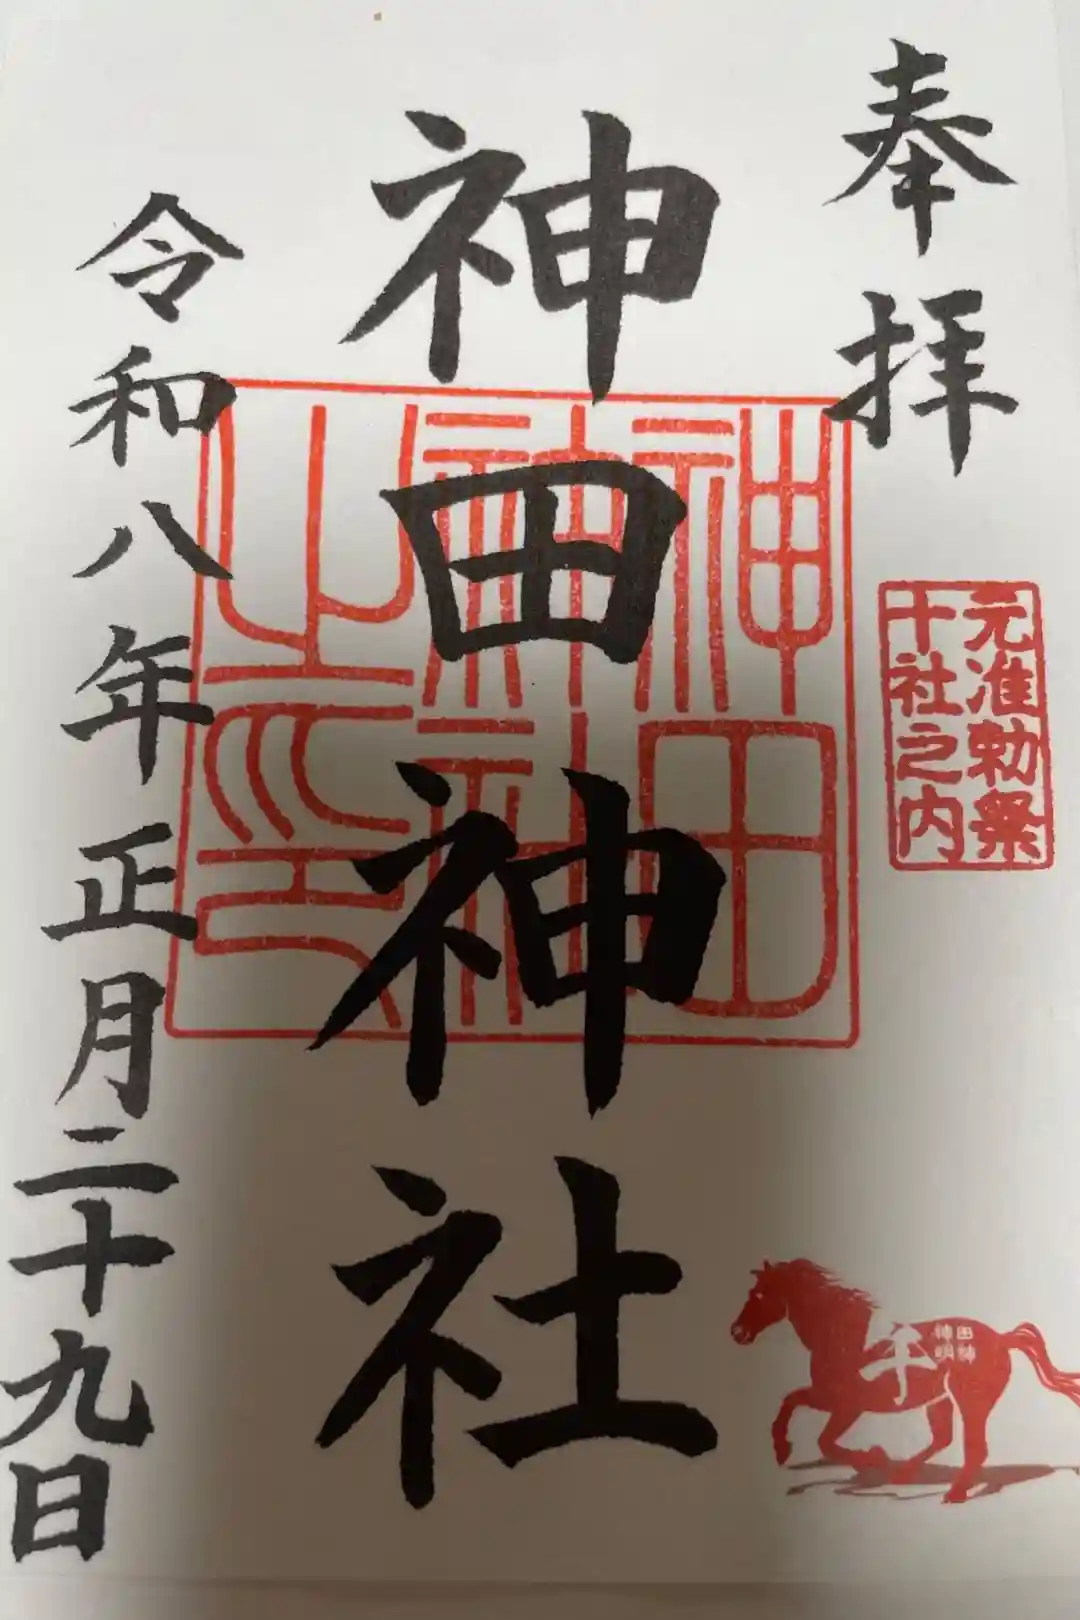 奉拝
元准勅祭
十社之内
神田神社
神田
神社
之印
令和八年正月二十九日
午
神田
明神